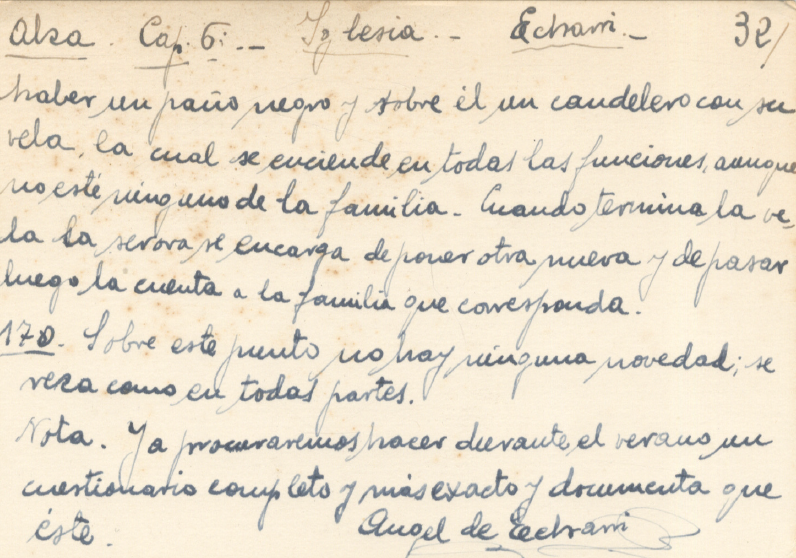 Alza. Cap. 6:-- Iglesia.-- Echarri.- 32/
haber un paño negro y sobre él un candelero con su
vela, la cual se enciende en todas las funciones, aunque
no esté ninguno de la familia. Cuando termina la ve-
la la serora se encarga de poner otra nueva y de pasar
luego la cuenta a la familia que corresponda.
170. Sobre este punto no hay ninguna novedad; se
reza como en todas partes.
Nota. Ya procuraremos hacer durante el verano un
cuestionario completo y más exacto y documenta que
éste. Angel de Echarri